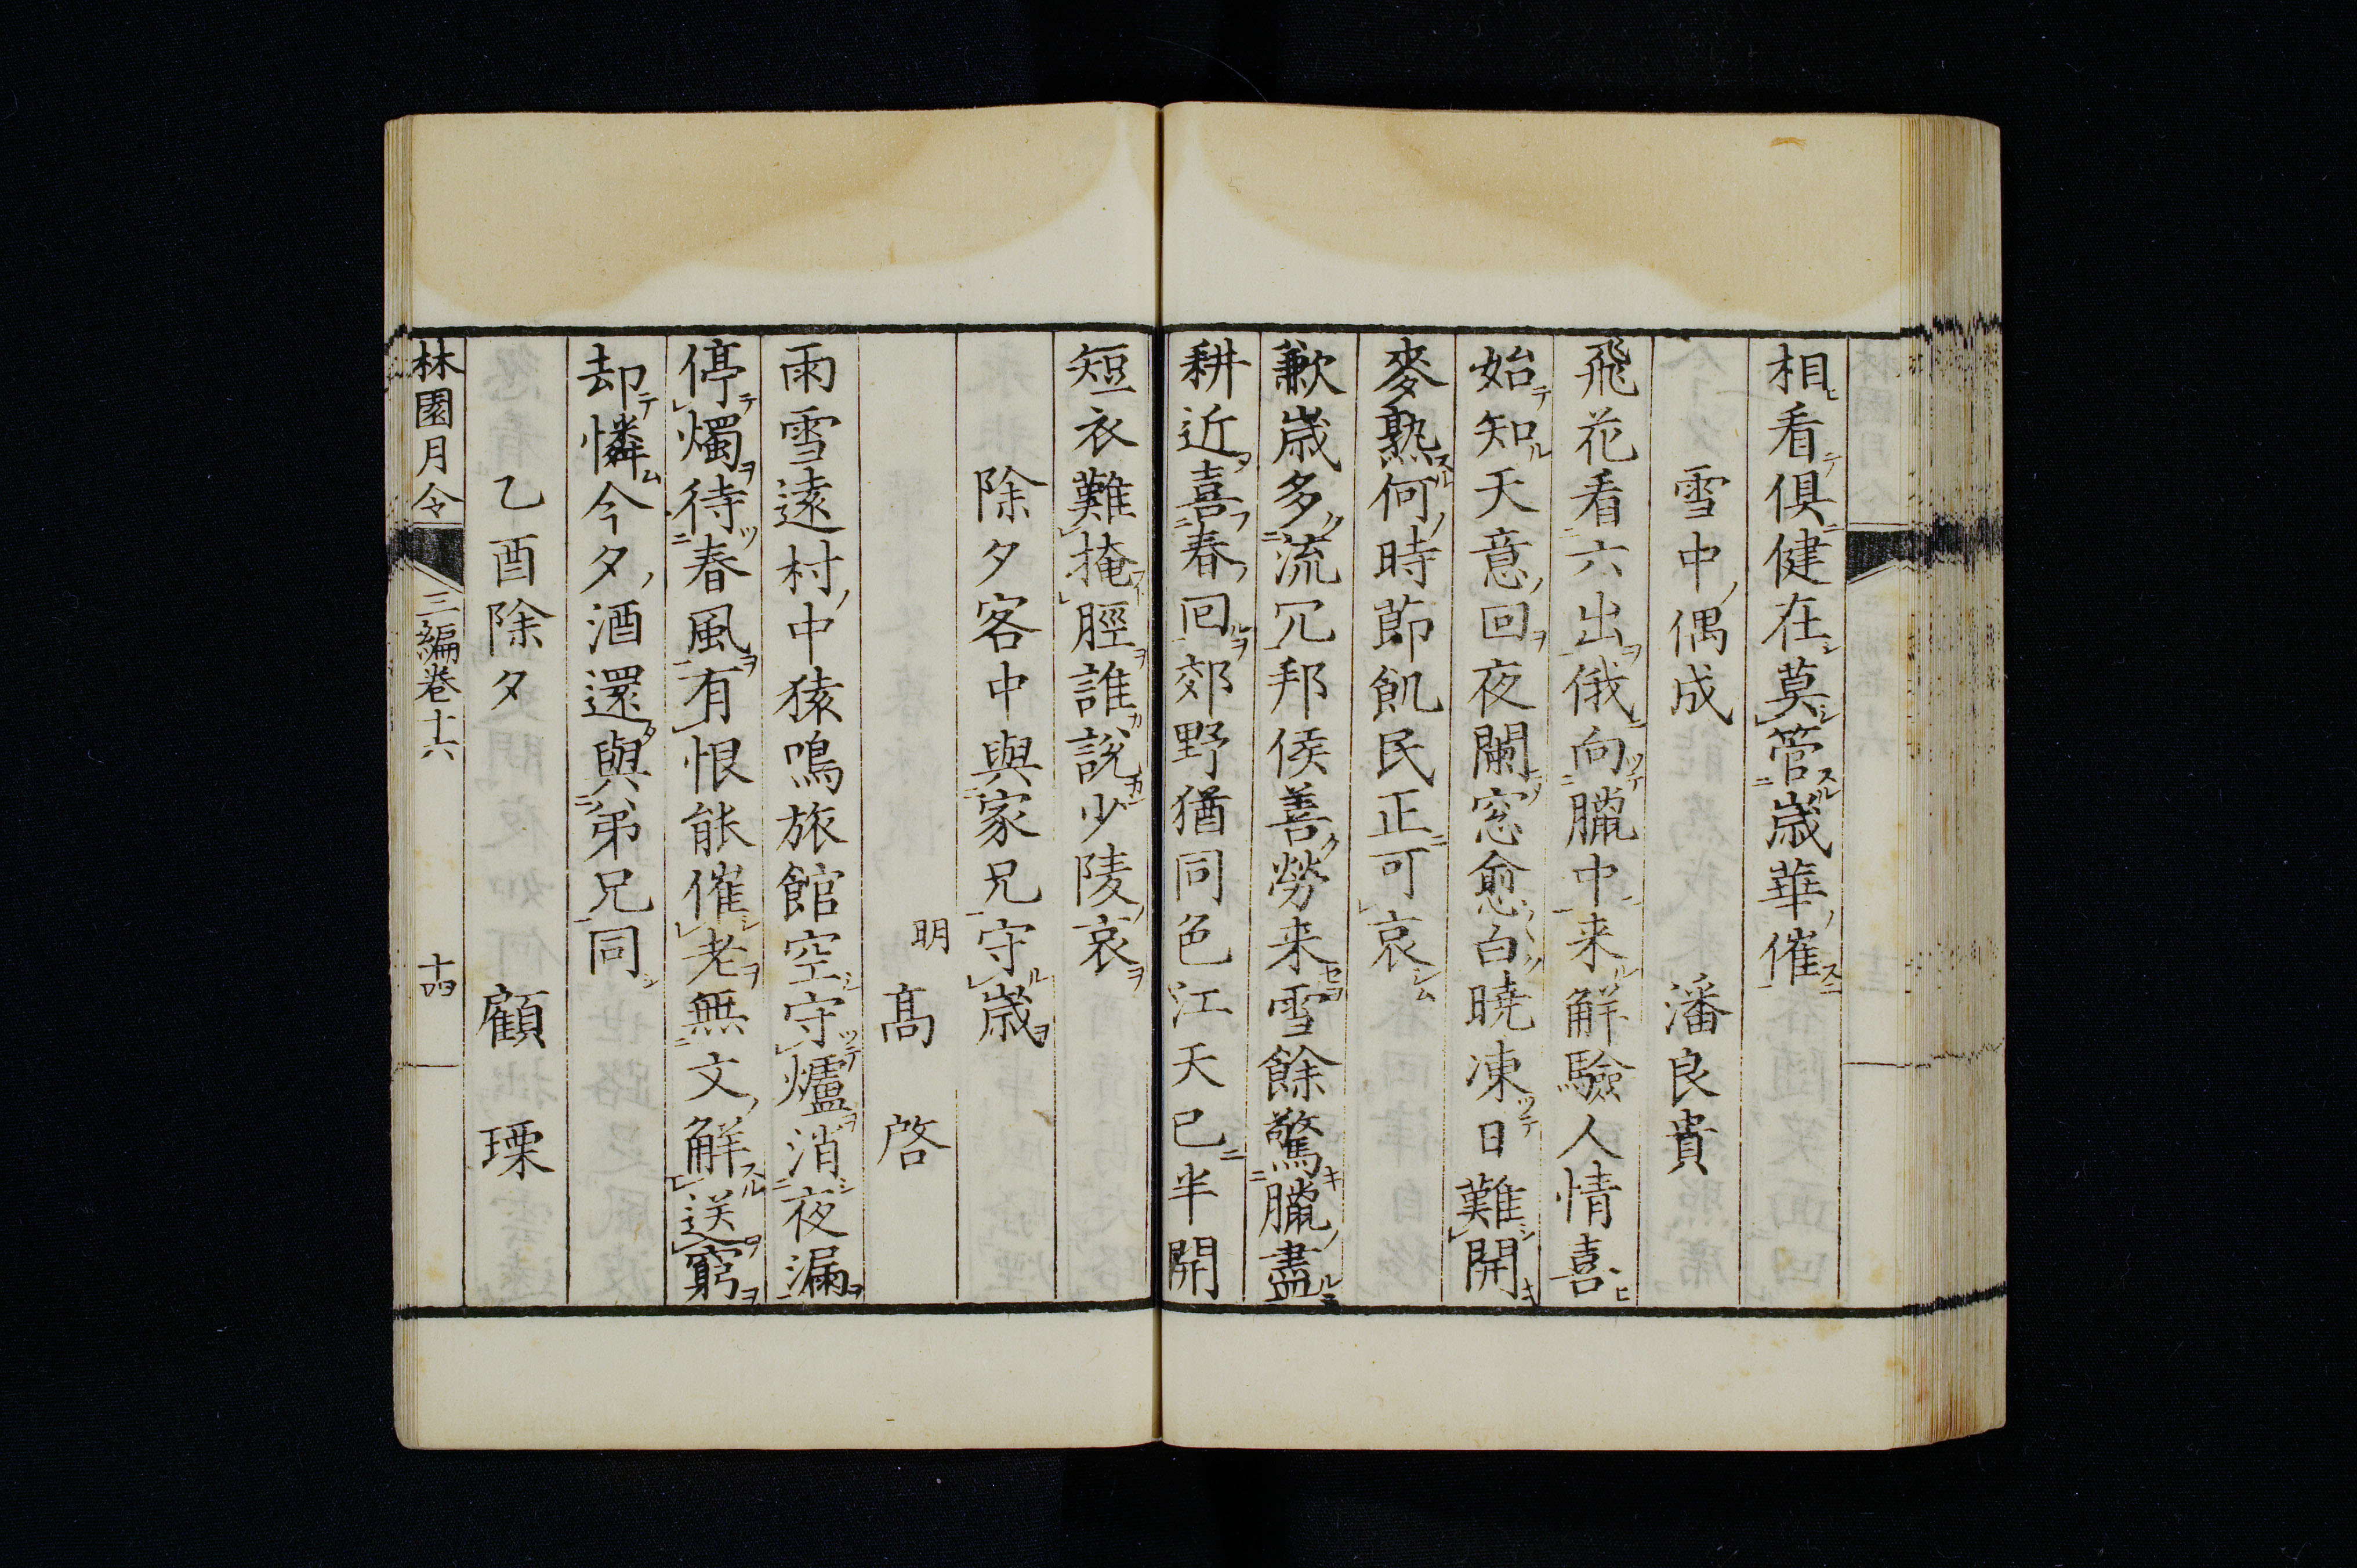 相看俱健在莫管歳華催
雪中偶成　潘良貴
飛花看六出俄向臘中来解驗人情喜
始知天意回夜闌窓愈白曉凍日難開
麥熟何時節飢民正可哀
歉歳多流冗邦侯善勞来雪餘驚臘盡
耕近喜春回郊野猶同色江天已半開
短衣難掩脛誰説少陵哀
除夕客中與家兄守歳
明　髙　啓
雨雪遠村中猿鳴旅館空守爐消夜漏
停燭待春風有恨能催老無文解送窮
却憐今夕酒還與弟兄同
乙酉除夕　顧　瑮
林園月令　三編巻十六　十四